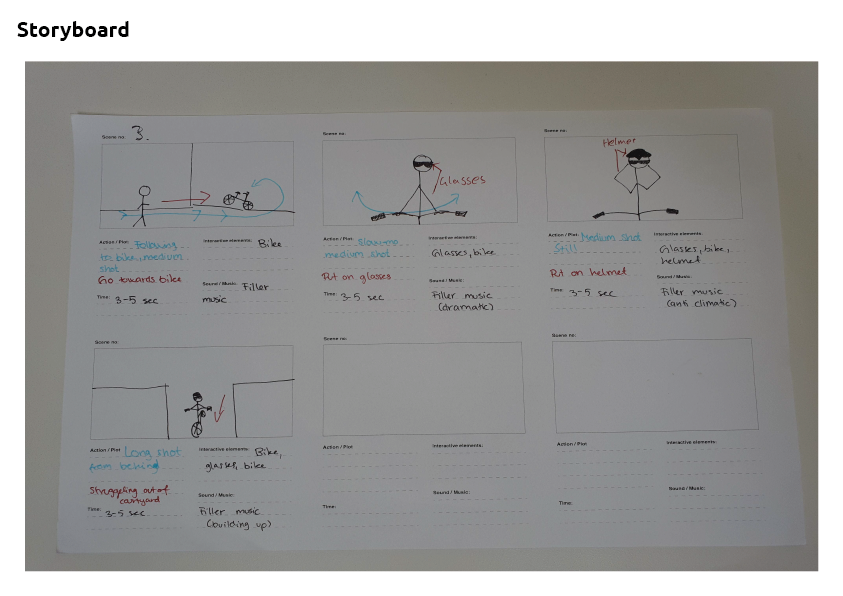 Storyboard
Scene no: 3.
Action / Plot: Following
to bike, medium
shot
Go towards bike
Time: 3-5 sec
Interactive elements: Bike
Sound / Music: Filler
music
Scene no:
Glasses
Action / Plot: Slow-mo
medium shot
Put on glasses
Time: 3-5 sec
Interactive elements:
Glasses, bike
Sound / Music:
Filler music
(dramatic)
Scene no:
Helmet
Action / Plot: Medium shot
Still
Put on helmet
Time: 3-5 sec
Interactive elements:
Glasses, bike,
helmet
Sound / Music:
Filler music
(anti climatic)
Scene no:
Action / Plot: Long shot
behind
Struggling out of
Time: 3-5 sec
Interactive elements: Bike,
glasses, bike
Sound / Music:
Filler music
(building up)
Scene no:
Action / Plot
Time:
Interactive elements:
Sound / Music:
Scene no:
Action / Plot
Time:
Interactive elements:
Sound / Music: